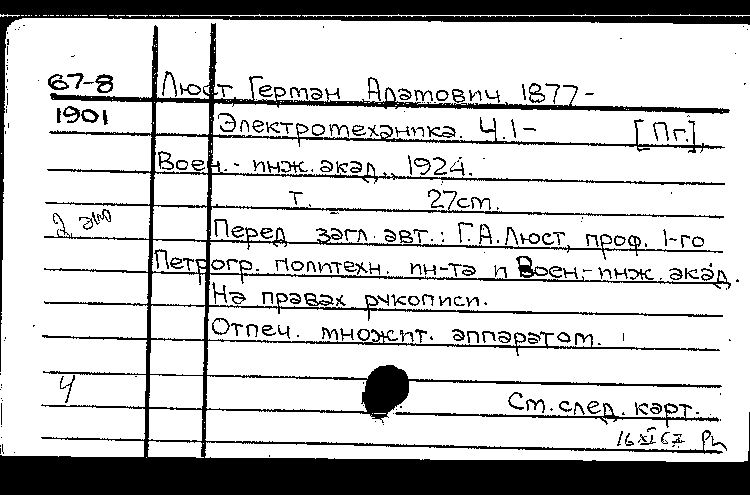 67-8 Люст, Герман Адамович. 1877-
1901 Электротеханика. Ч.1- [Пг.],
Воен.- инж. акад., 1924.
т. 27см.
2 экз Перед загл. авт.: Г.А.Люст, проф. 1-го
Петрогр. политехн. ин-та и Воен.-инж. акад.
На правах рукописи.
Отпеч. множит. аппаратом.
Ч
См. след. карт.
16 XI 67